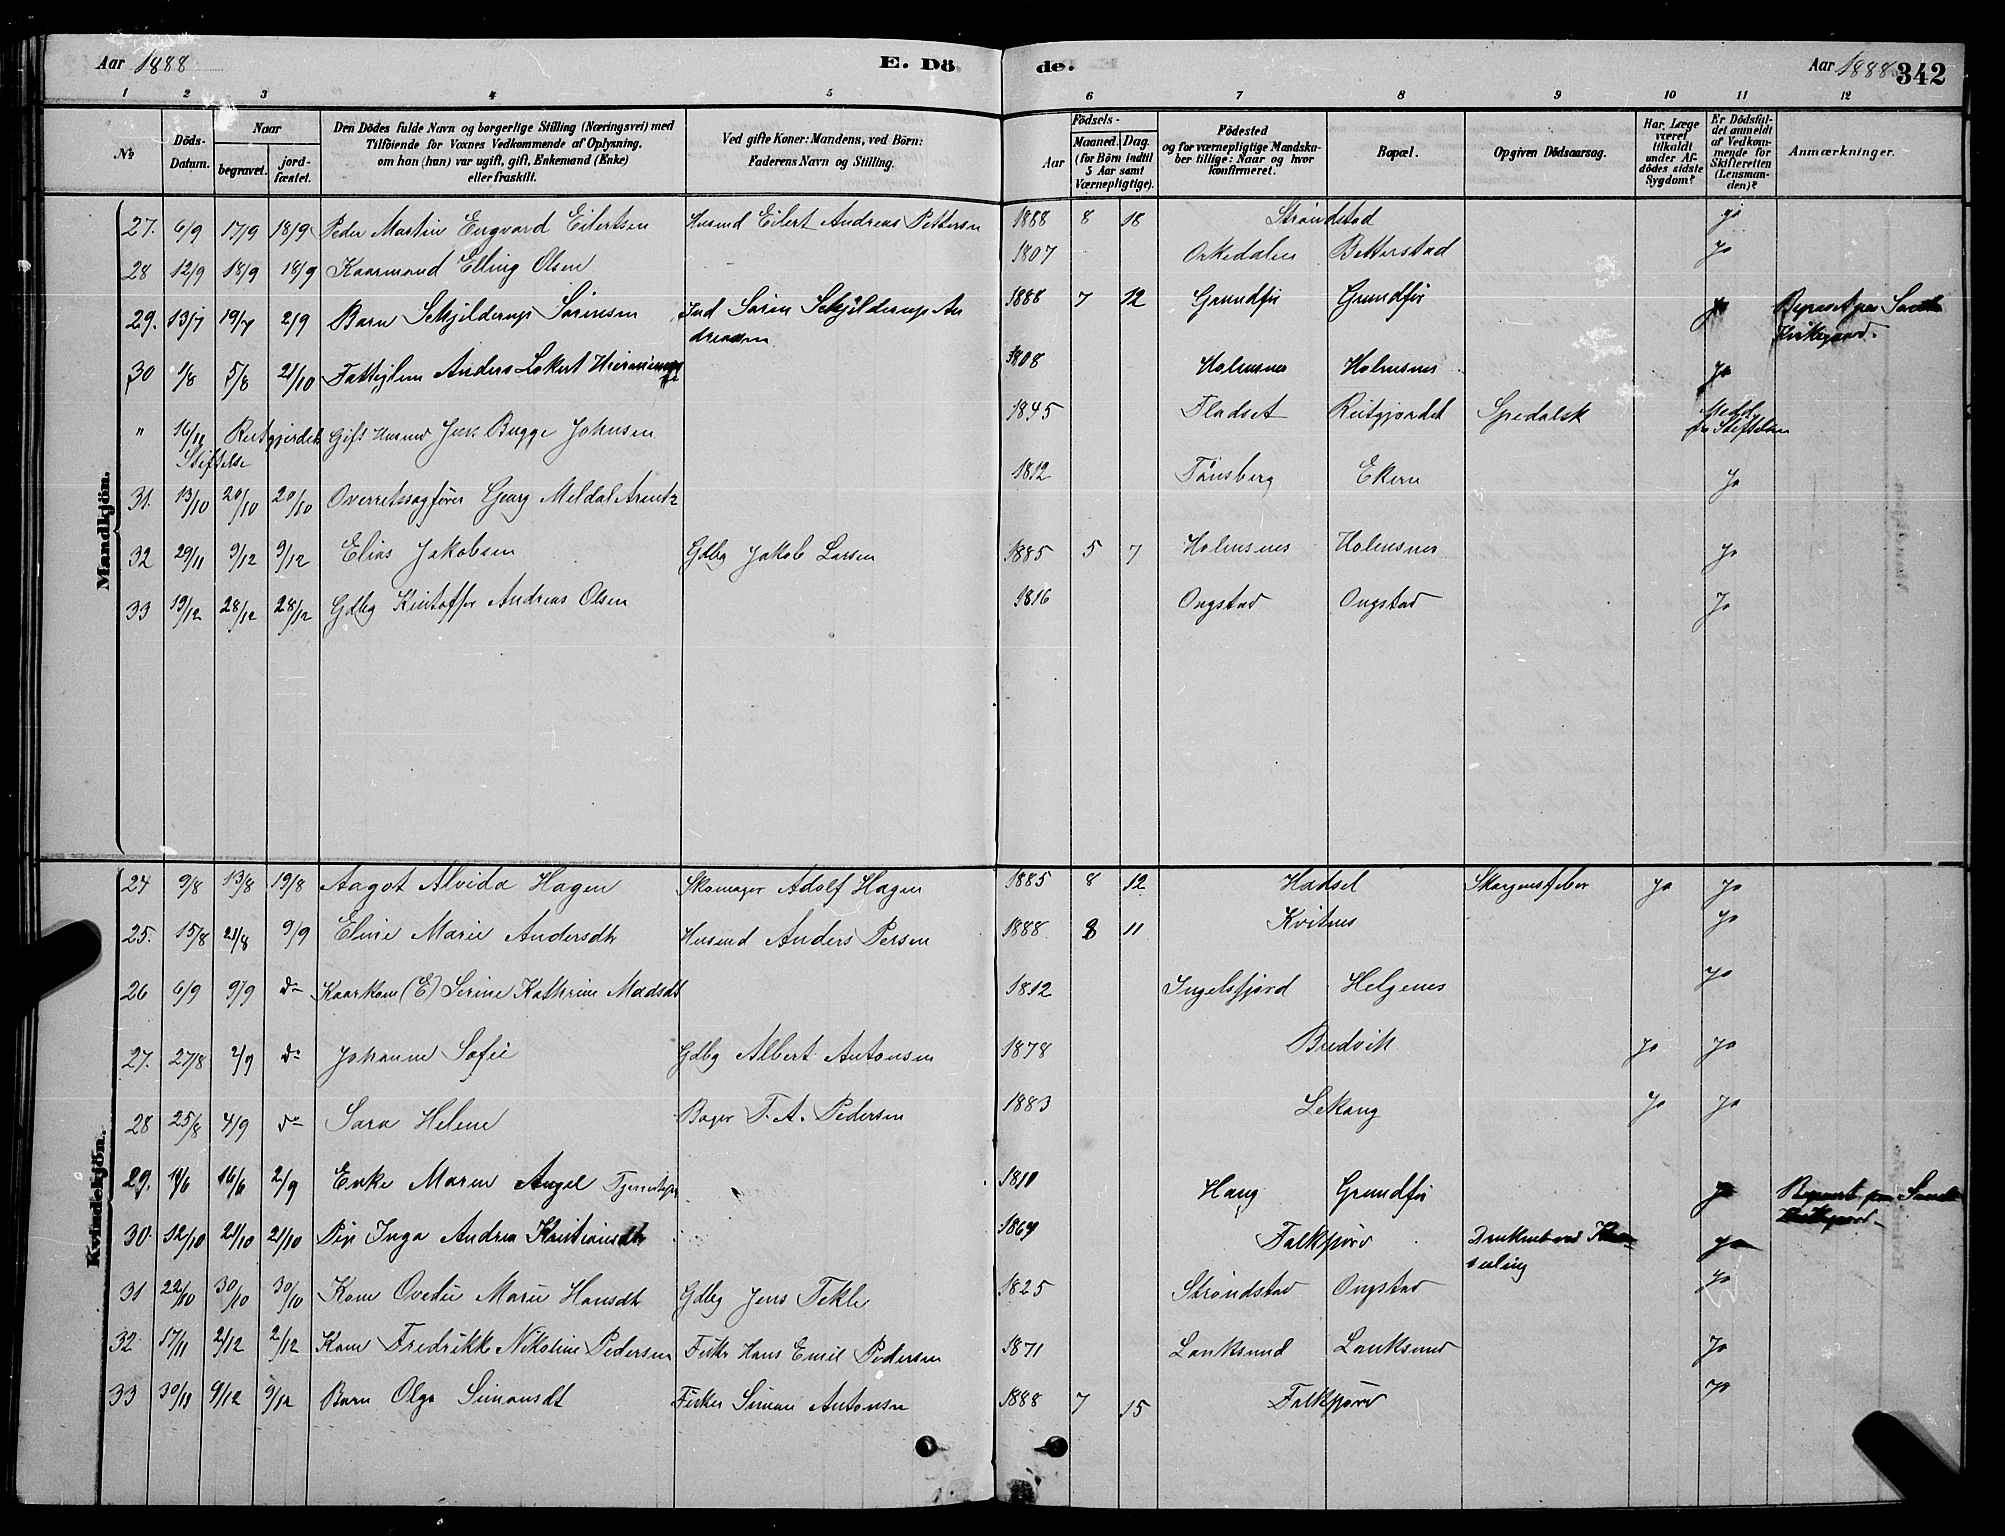 Aar 1888 E. Dö de. Aar 1888 342
1 2 3 4 5 6 7 8 9 10 11 12
№
Döds-Datum.
Naar
begravet.
jord-fæstet.
Den Dödes fulde Navn og borgerlige Stilling (Næringsvei) med
Tilföiende for Voxnes Vedkommende af Oplysning,
om han (hun) var ugift, gift, Enkemand (Enke)
eller fraskilt.
Ved gifte Koner: Mandens, ved Börn:
Faderens Navn og Stilling.
Födsels-
Aar
Maaned. Dag.
(for Börn indtil
5 Aar samt
Værnepligtige).
Födested
og for værnepligtige Mandska-
ber tillige: Naar og hvor
konfirmeret.
Bopæl.
Opgiven Dödsaarsag.
Har Læge
været
tilkaldt
under Af-
dödes sidste
Sygdom?
Er Dödsfal-
det anmeldt
af Vedkom-
mende for
Skifteretten
(Lensman-
den)?
Anmærkninger.
Mandkjön.
27. 6/9 17/9 18/9 Peder Martin Engvard Eilertsen Husmd Eilert Andreas Pettersen 1888 8 18 Strandstad ja
28 12/9 18/9 18/9 Kaarmand Elling Olsen 1807 Orkedalen Bitterstad ja
29. 13/7 19/7 2/9 Barn Schjilderup Sørensen Ind Søren Schjilderup An 1888 7 12 Grundfør Grundfør ja
dreasen Kirkegaard.
30 1/8 5/8 21/10 Fattiglem Anders Lokert 1808 Holmsnes Holmsnes ja
" 16/12 Reitgjerdet Gift Husmd Jens Bugge Johnsen 1845 Fladset Reitgjerdet Spedalsk Medd
Stiftelse fra Stiftelsen
31. 13/10 20/10 20/10 Overretssagfører Georg Meldal Arentz 1812 Tønsberg Ekern ja
32 29/11 9/12 9/12 Elias Jakobsen Gdbg Jakob Larsen 1885 5 7 Holmsnes Holmsnes ja
33 19/12 28/12 28/12 Gdbg Kristoffer Andreas Olsen 1816 Ongstad Ongstad ja
Kvindekjön.
24 9/8 13/8 19/8 Aagot Alvida Hagen Skomager Adolf Hagen 1885 8 12 Hadsel Skargensfeber ja ja
25. 15/8 21/8 9/9 Eline Marie Andersdtr Husmd Anders Persen 1888 8 11 Kvitnes ja
26 6/9 9/9 do Kaarkone (E) Serine Kathrine Madsdt 1812 Ingelsfjord Helgenes ja
27. 27/8 2/9 do Johanne Sofie Gdbg Albert Antonsen 1878 Bredvik ja ja
28 25/8 4/9 do Sara Helene Bager T. A. Pedersen 1883 Lekang ja ja
29. 16/6 2/9 Enke Maren Angel 1810 Haug Grundfør ja
30. 12/10 21/10 21/10 Pige Inga Andrea Kristiansdtr 1869 Falkfjord Druknet ved ja
seiling
31 22/10 30/10 30/10 Kone Ovedie Marie Hansdtr Gdbg Jens Tekle 1825 Strandstad Ongstad ja
32 17/11 2/12 2/12 Kone Fredrikke Nikoline Pedersen Fisker Hans Emil Pedersen 1871 Lanksund Lanksund ja
33 30/11 9/12 9/12 Barn Olga Simonsdt Fisker Simon Antonsen 1888 7 15 Falkfjord ja